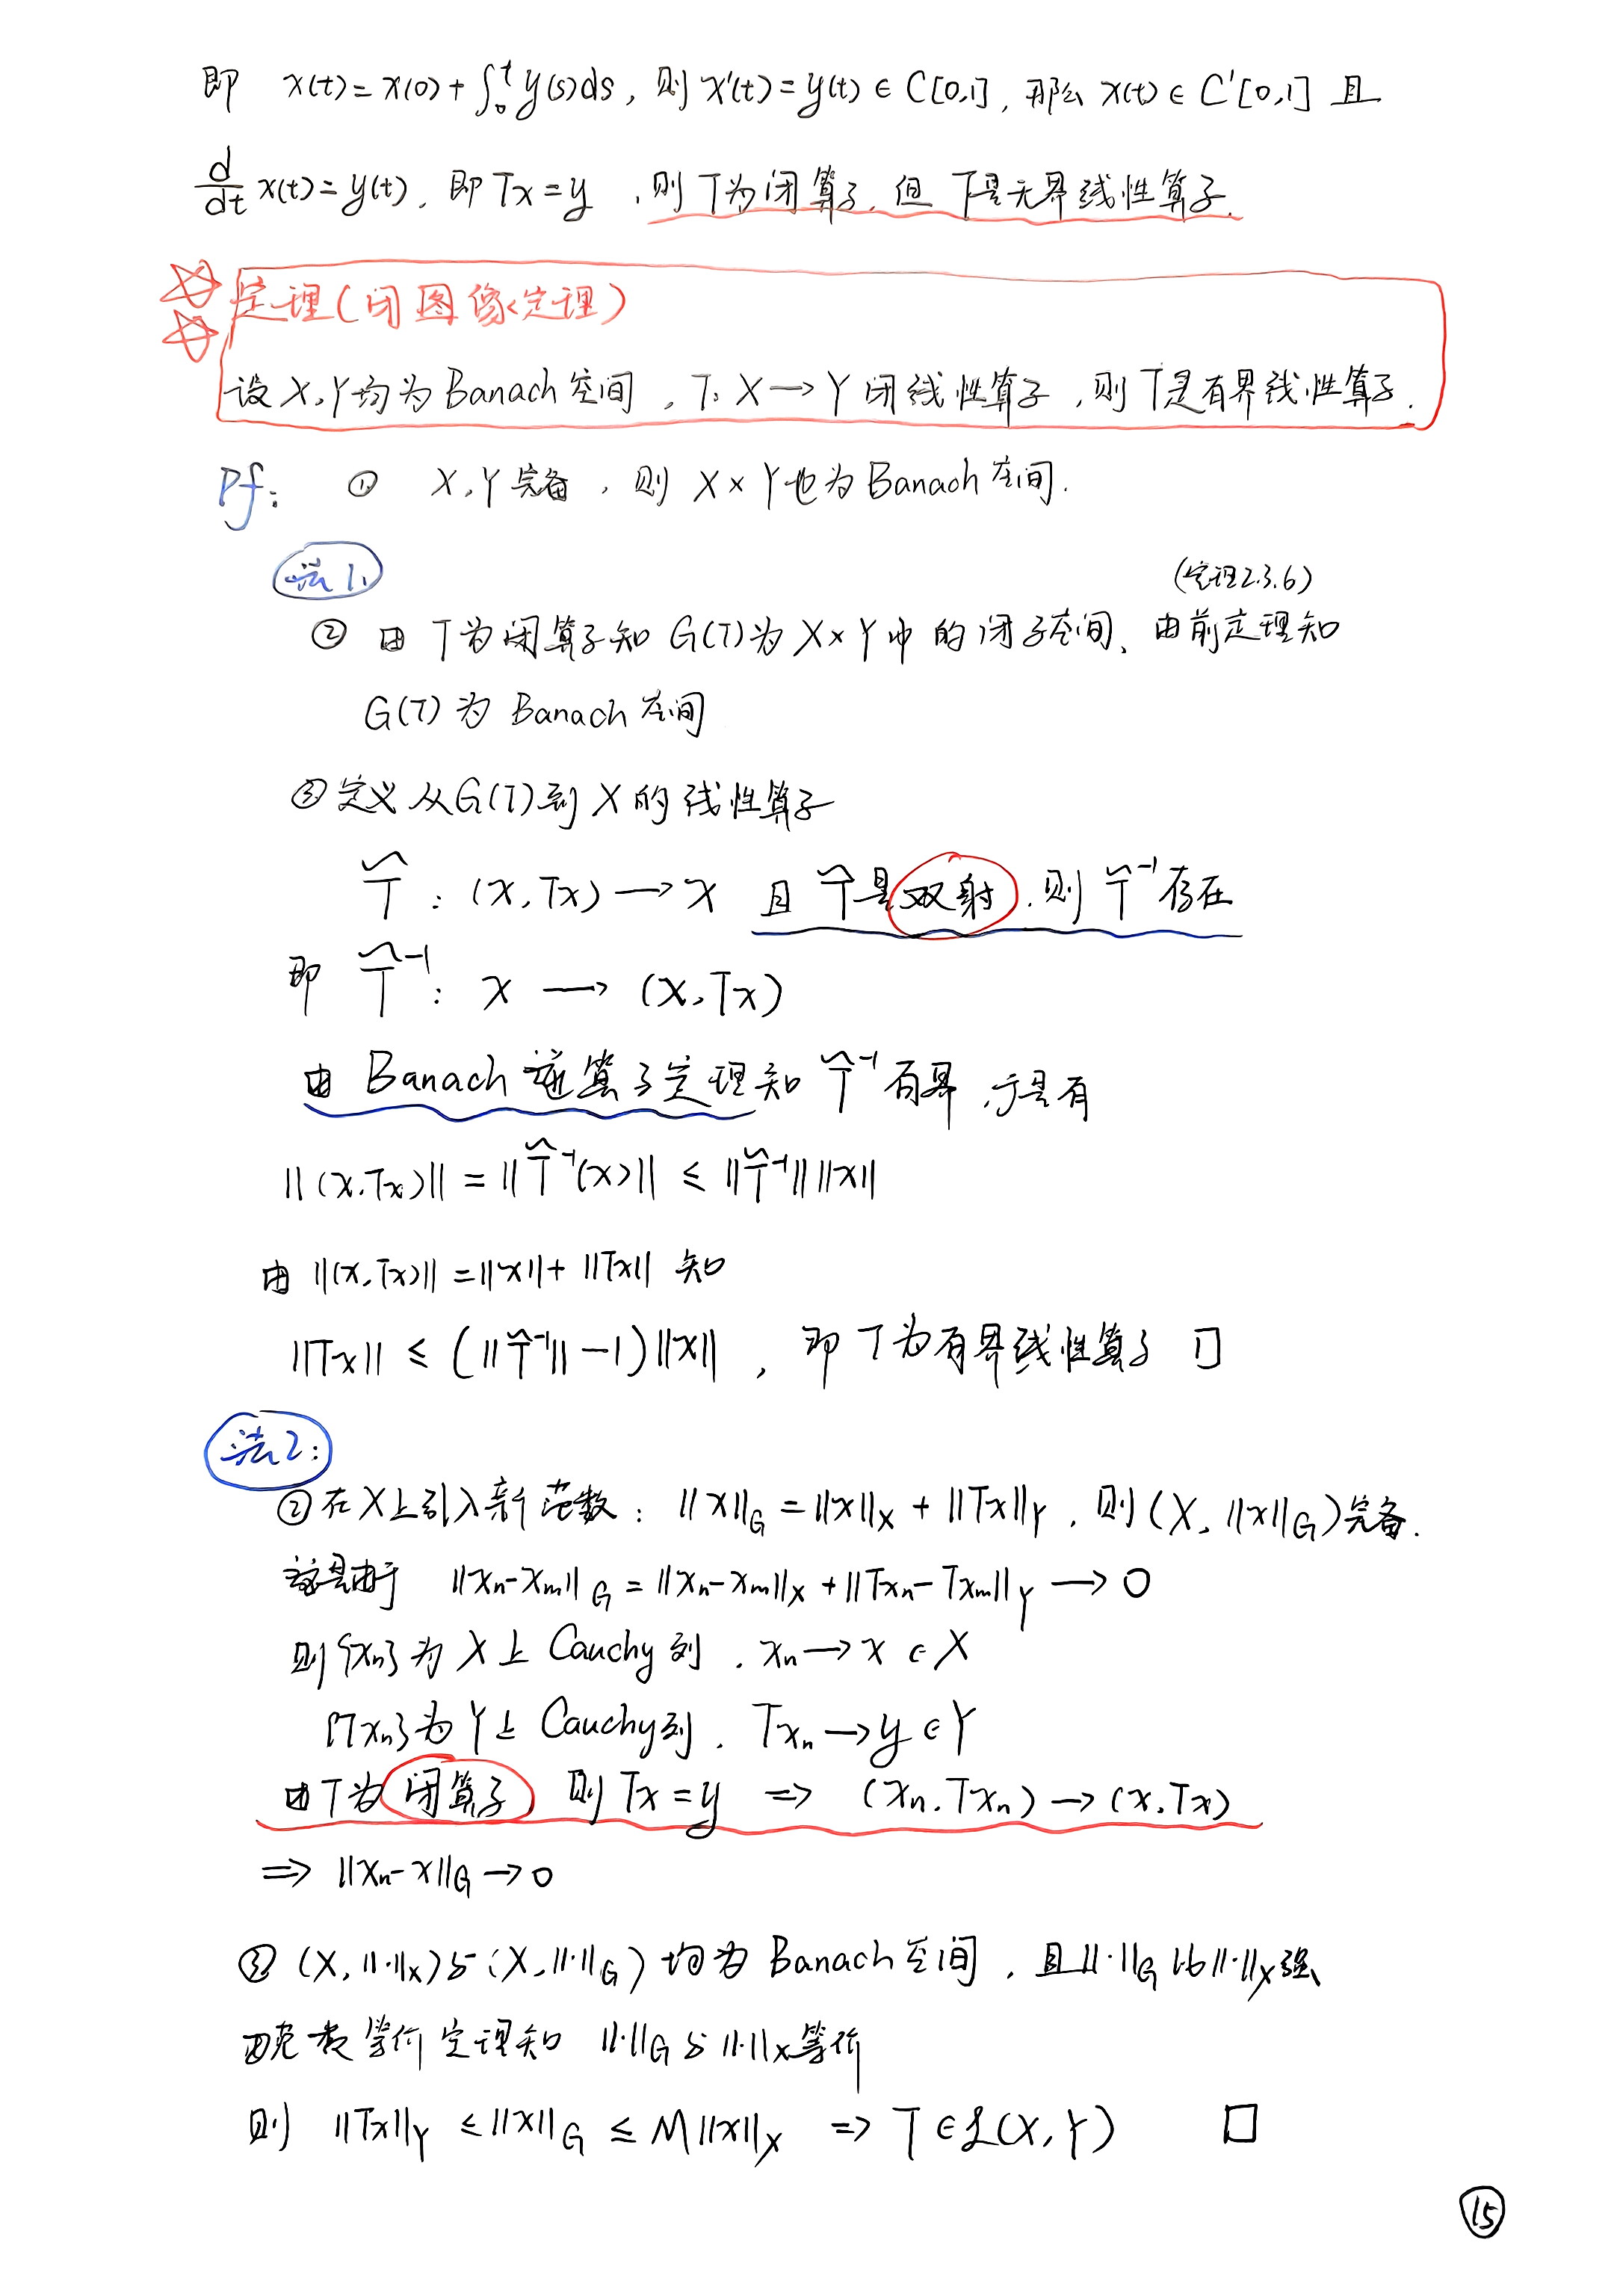 即 x(t)=x(0)+∫₀ᵗ y(s)ds, 则 x'(t)=y(t)∈C[0,1], 那么 x(t)∈C'[0,1] 且
d/dt x(t)=y(t), 即 Tx=y, 则T为闭算子, 但 T是无界线性算子.
定理(闭图像定理)
设X,Y均为Banach空间, T: X→Y 闭线性算子, 则T是有界线性算子.
Pf: ① X,Y完备, 则 X×Y也为Banach空间.
法1.
(定理2.3.6)
② 由T为闭算子知 G(T)为X×Y中的闭子空间, 由前定理知
G(T)为 Banach空间
③ 定义从G(T)到X的线性算子
T̃: (x,Tx)→x 且 T̃是双射, 则 T̃⁻¹存在
即 T̃⁻¹: x→(x,Tx)
由 Banach逆算子定理知 T̃⁻¹有界, 于是有
||(x.Tx)|| = ||T̃⁻¹(x)|| ≤ ||T̃⁻¹|| ||x||
由 ||(x,Tx)|| = ||x|| + ||Tx|| 知
||Tx|| ≤ (||T̃⁻¹||-1)||x||, 即 T为有界线性算子 □
法2:
② 在X上引入新范数: ||x||_G = ||x||_X + ||Tx||_Y, 则(X, ||x||_G)完备.
这是由于 ||xₙ-xₘ||_G = ||xₙ-xₘ||_X + ||Txₙ-Txₘ||_Y → 0
则{xₙ}为X上Cauchy列, xₙ→x∈X
{Txₙ}为Y上Cauchy列, Txₙ→y∈Y
由T为闭算子 则 Tx=y ⇒ (xₙ.Txₙ)→(x.Tx)
⇒ ||xₙ-x||_G→0
③ (X, ||·||_X)与(X, ||·||_G)均为Banach空间, 且||·||_G比||·||_X强
由范数等价定理知 ||·||_G与||·||_X等价
则 ||Tx||_Y ≤ ||x||_G ≤ M||x||_X ⇒ T∈ℒ(X,Y) □
15